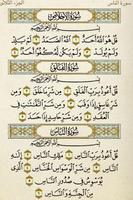 سورة الناس الجزء الثلاثون
سُورَةُ الإِخْلَاصِ
بِسْمِ اللَّهِ الرَّحْمَٰنِ الرَّحِيمِ
قُلْ هُوَ اللَّهُ أَحَدٌ ١ اللَّهُ الصَّمَدُ ٢
لَمْ يَلِدْ وَلَمْ يُولَدْ ٣ وَلَمْ يَكُن لَّهُ كُفُوًا أَحَدٌ ٤
سُورَةُ الفَلَقِ
بِسْمِ اللَّهِ الرَّحْمَٰنِ الرَّحِيمِ
قُلْ أَعُوذُ بِرَبِّ الْفَلَقِ ١ مِن شَرِّ مَا خَلَقَ ٢
وَمِن شَرِّ غَاسِقٍ إِذَا وَقَبَ ٣ وَمِن شَرِّ النَّفَّاثَاتِ
فِي الْعُقَدِ ٤ وَمِن شَرِّ حَاسِدٍ إِذَا حَسَدَ ٥
سُورَةُ النَّاسِ
بِسْمِ اللَّهِ الرَّحْمَٰنِ الرَّحِيمِ
قُلْ أَعُوذُ بِرَبِّ النَّاسِ ١ مَلِكِ النَّاسِ ٢
إِلَٰهِ النَّاسِ ٣ مِن شَرِّ الْوَسْوَاسِ الْخَنَّاسِ ٤ الَّذِي
يُوَسْوِسُ فِي صُدُورِ النَّاسِ ٥
مِنَ الْجِنَّةِ وَالنَّاسِ ٦